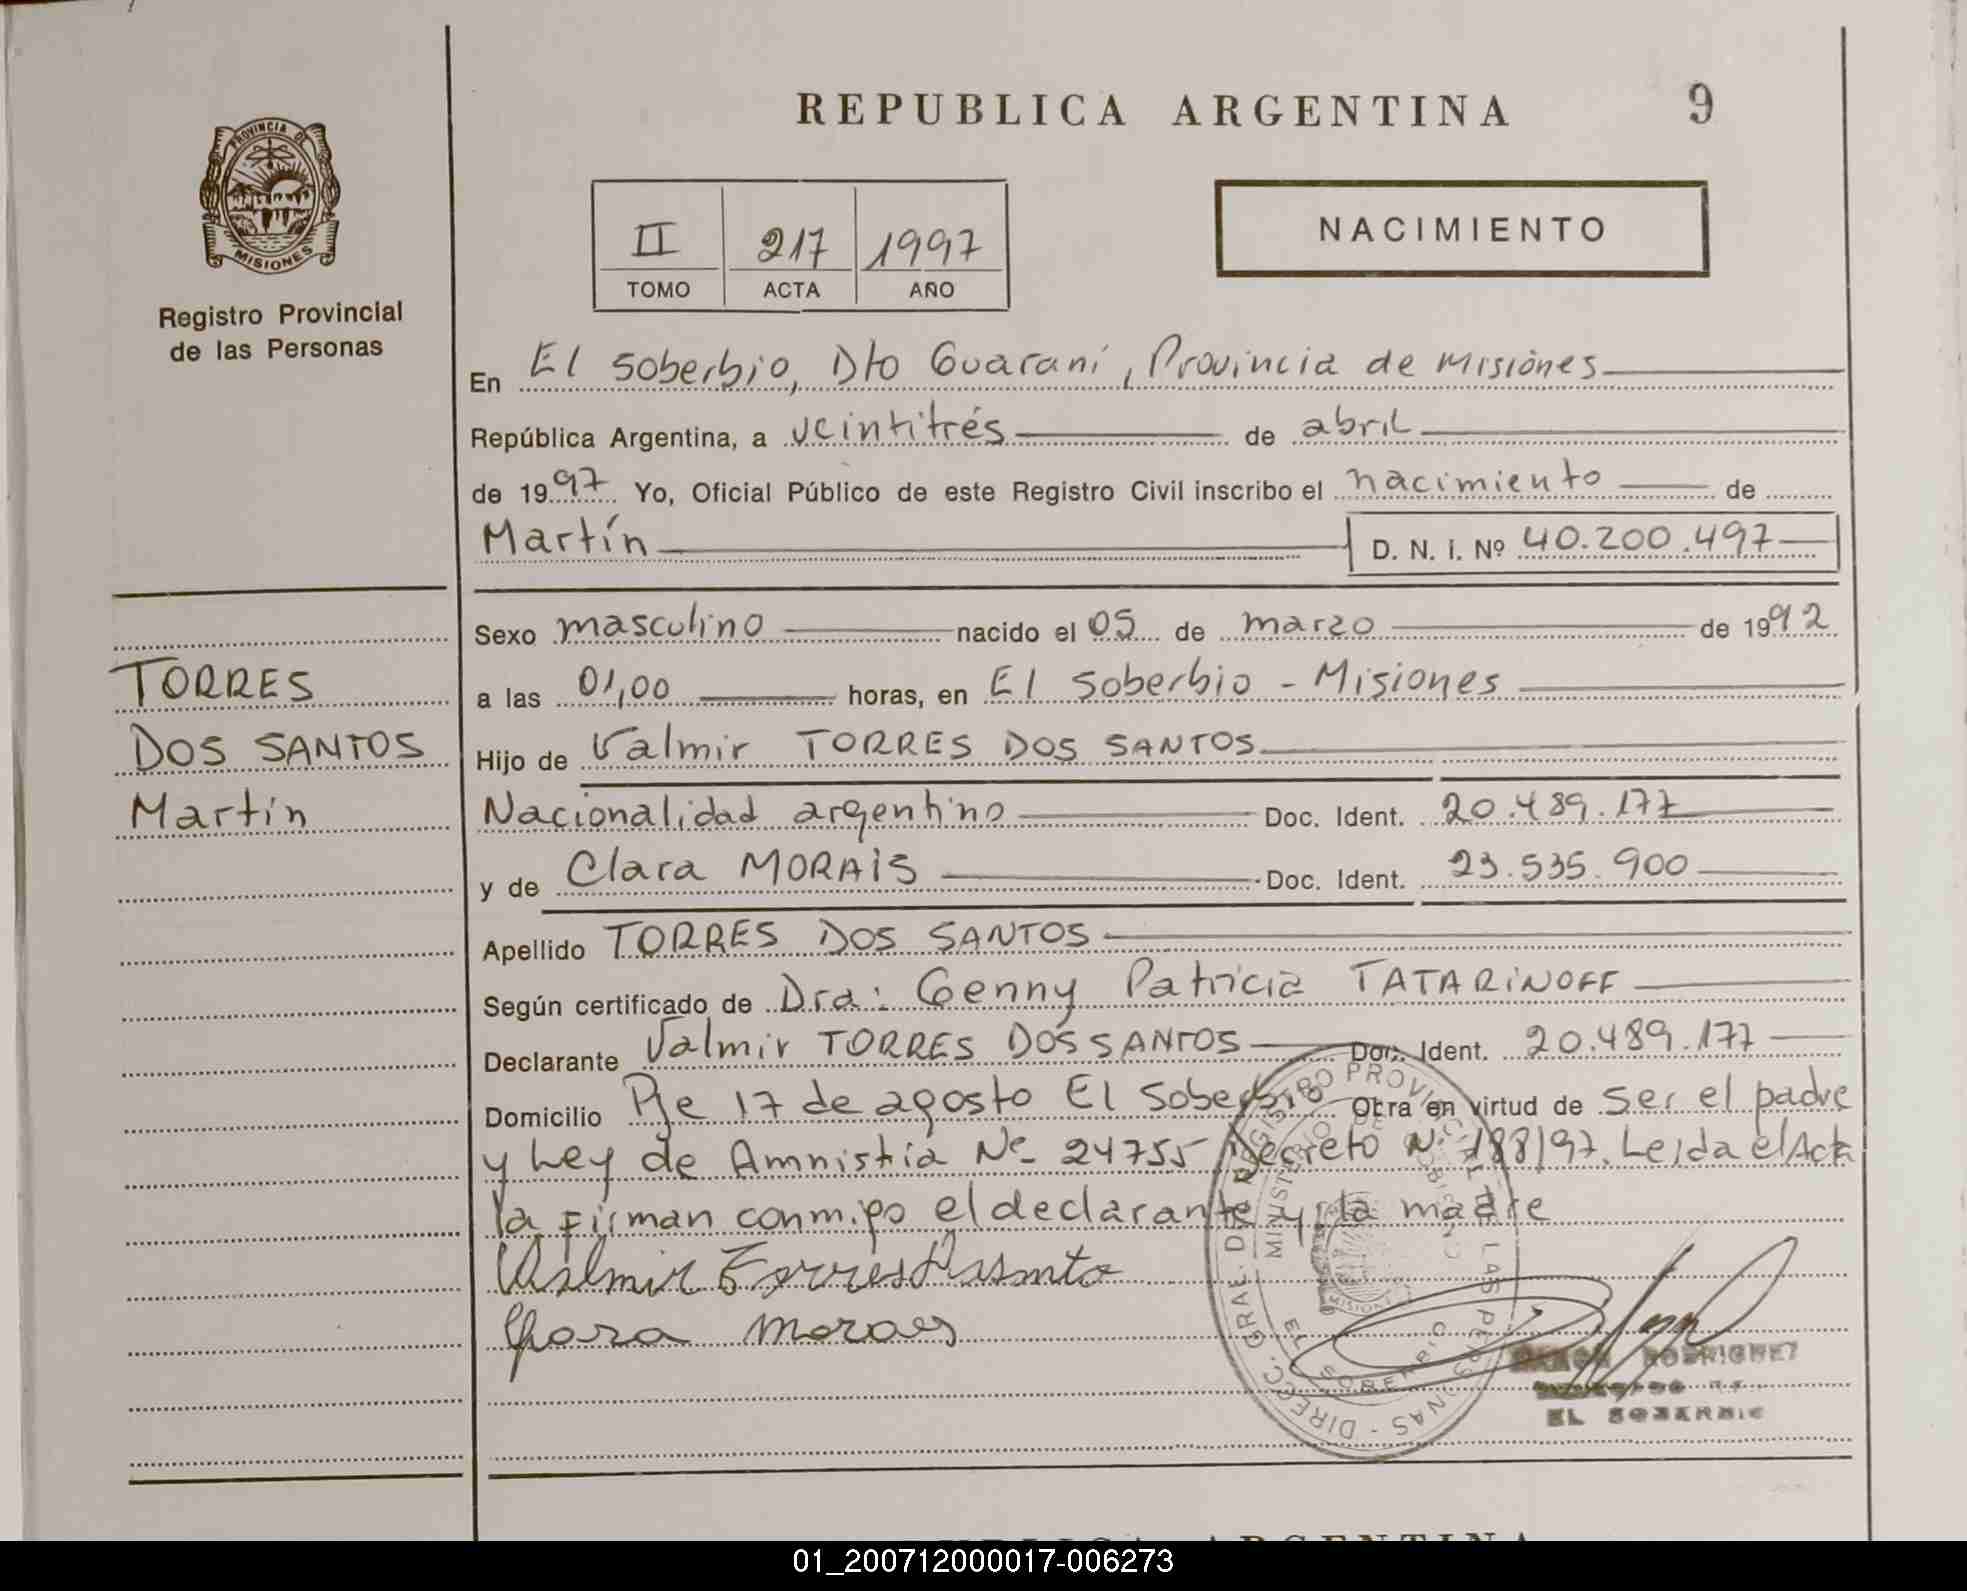 REPUBLICA ARGENTINA 9
PROVINCIA DE
MISIONES
Registro Provincial
de las Personas
II 217 1997
TOMO ACTA AÑO
NACIMIENTO
En El Soberbio, Dto Guaraní, Provincia de Misiones
República Argentina, a veintitrés de abril
de 1997 Yo, Oficial Público de este Registro Civil inscribo el nacimiento de
Martín D. N. I. Nº 40.200.497
Sexo masculino nacido el 05 de marzo de 1992
a las 01,00 horas, en El Soberbio - Misiones
Hijo de Valmir TORRES DOS SANTOS
Nacionalidad argentino Doc. Ident. 20.489.177
y de Clara MORAIS Doc. Ident. 23.535.900
Apellido TORRES DOS SANTOS
Según certificado de Dra: Genny Patricia TATARINOFF
Declarante Valmir TORRES DOS SANTOS Doc. Ident. 20.489.177
Domicilio Pje 17 de agosto El Soberbio Obra en virtud de Ser el padre
y Ley de Amnistía Nº 24755 Decreto Nº 188/97. Leida el Acta
la firman conmigo el declarante y la madre
Valmir Torres
moraes
TORRES
DOS SANTOS
Martín
DIRECC. GRAL. DEL REGISTRO PROVINCIAL DE LAS PERSONAS
MINISTERIO DE GOBIERNO
MISIONES
EL SOBERBIO
RAMON RODRIGUEZ
EL SOBERBIO
REPUBLICA ARGENTINA
01_200712000017-006273